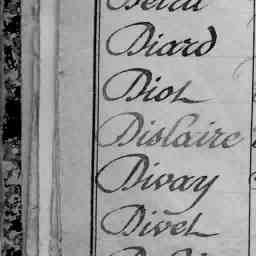 Diard
Diot
Dislaire
Divay
Divet